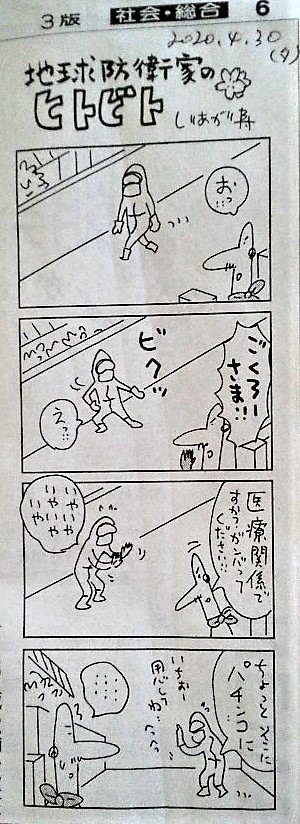 3版
社会・総合
6
2020.4.30
(夕)
地球防衛家の
ヒトビト
しりあがり寿
おっ…
ビクッ
ごくろー
さま!!!
えっ…
医療関係で
すか?ガンバって
ください…
いやいや
いやいや
いやいや
ちょっとそこに
パチンコに
いちおー
用心してね…へへっ
……